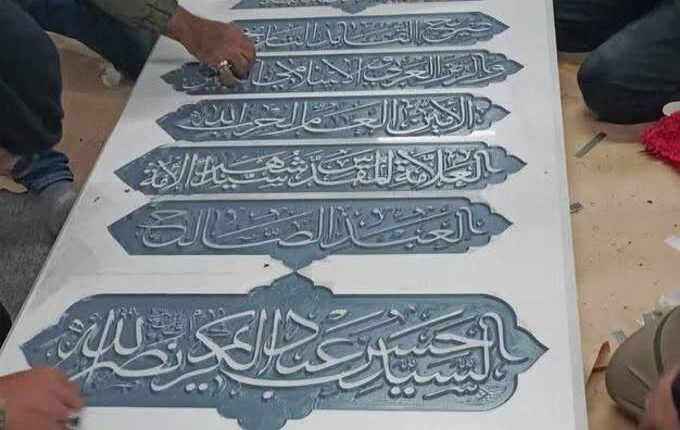 ضريح القائد
والرمز العربي الإسلامي
الأمين العام لحزب الله
العلامة المقدس شهيد الأمة
العبد الصالح
السيد حسن عبد الكريم نصر الله